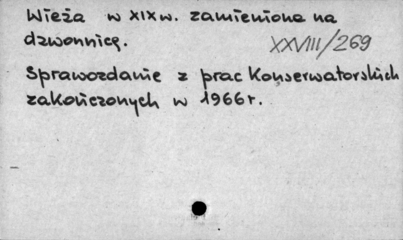 Wieża w XIX w. zamieniona na
dzwonnicę.
XXVIII/269
Sprawozdanie z prac Konserwatorskich
zakończonych w 1966 r.